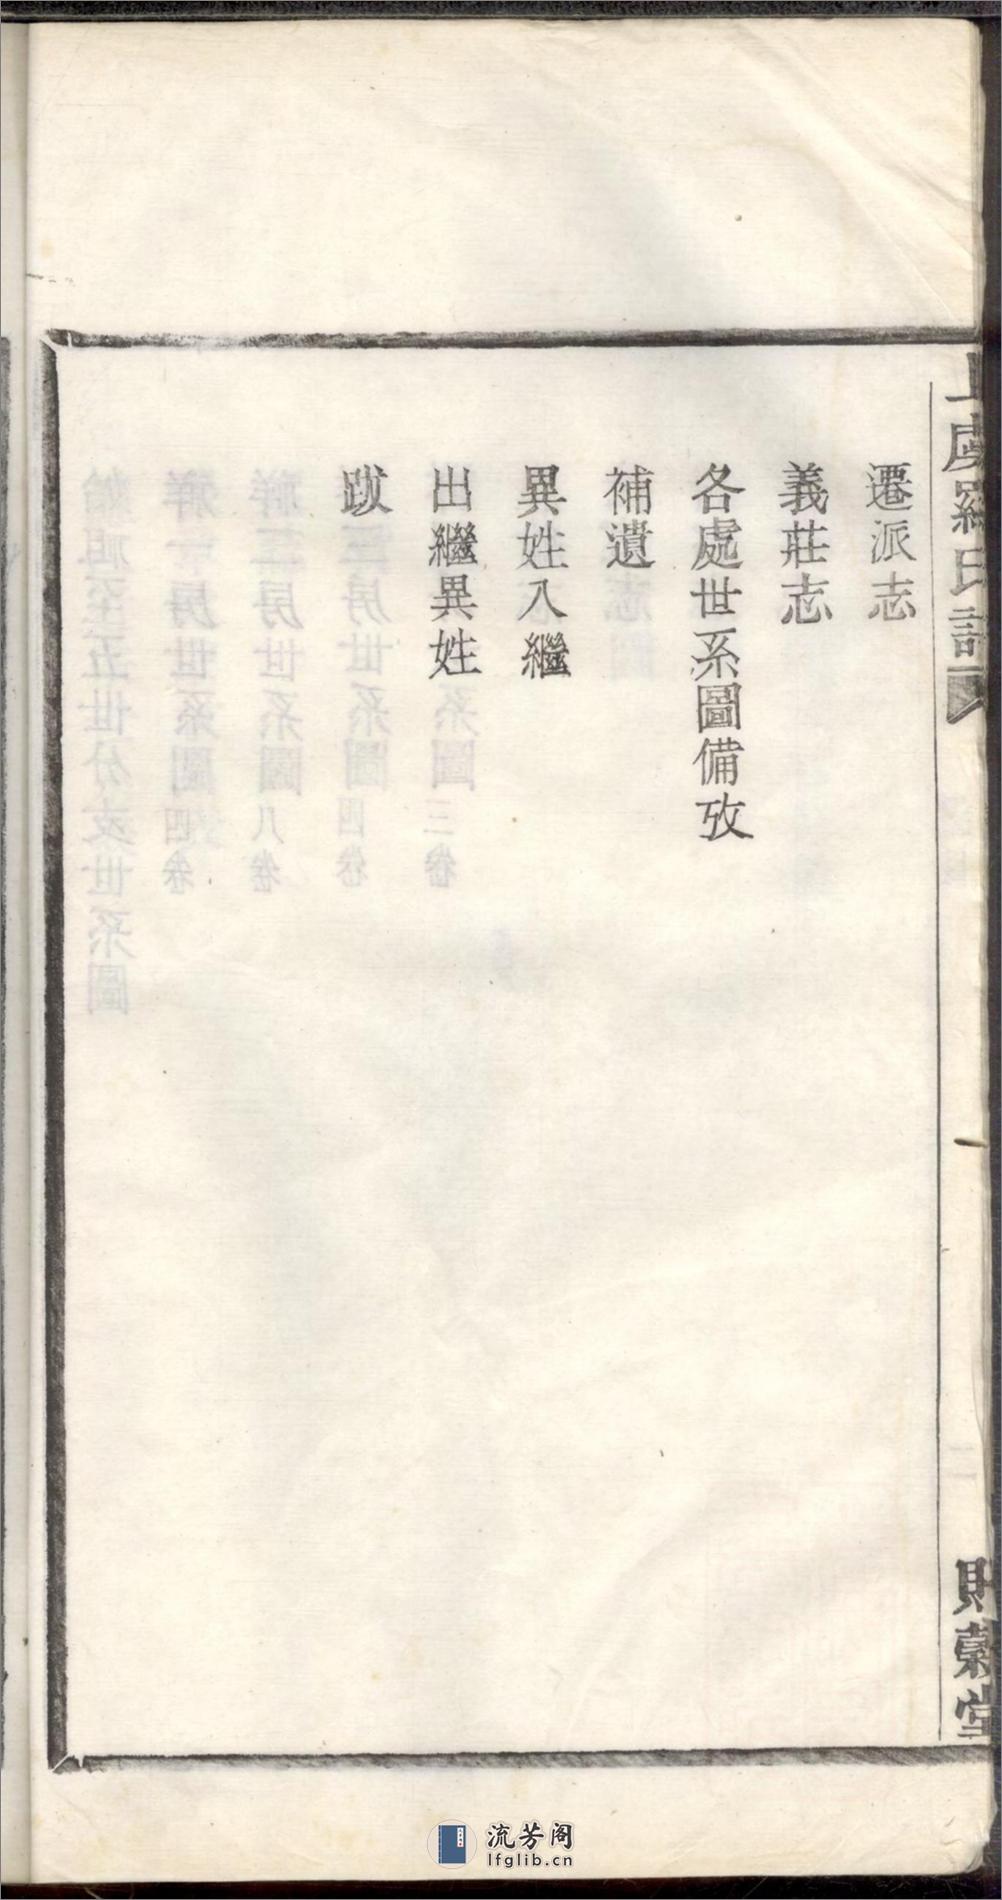 上虞羅氏譜
二
貽穀堂
遷派志
義莊志
各處世系圖備攷
補遺
異姓入繼
出繼異姓
跋
流芳阁
lfglib.cn